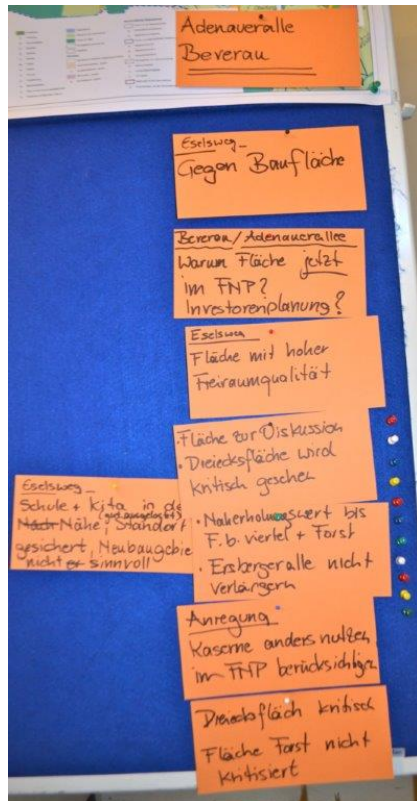 Adenaueralle
Beverau
Eselsweg
Gegen Baufläche
Beverau/Adenauerallee
Warum Fläche jetzt
im FNP?
Investorenplanung?
Eselsweg
Fläche mit hoher
Freiraumqualität
Fläche zur Diskussion
• Dreiecksfläche wird
kritisch gesehen
Eselsweg
Schule + Kita in de
Nähe, Standort
gesichert, Neubaugebie
nicht sinnvoll
• Naherholungswert bis
F.b. viertel + Forst
• Ersbergeralle nicht
verlängern
Anregung
Kaserne anders nutzen,
im FNP berücksichtigen
Dreiecksfläch kritisch
Fläche Forst nicht
kritisiert